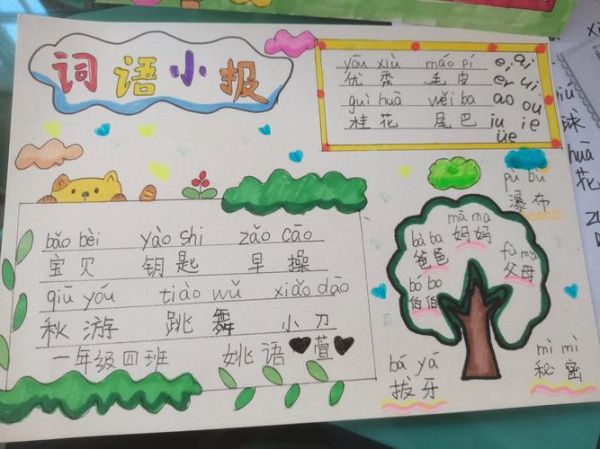 词语小报
yōu xiù máo pí
优秀 毛皮
guì huā wěi ba
桂花 尾巴
ai
ei ui
er
ao ou
iu ie
üe
bǎo bèi yào shi zǎo cāo
宝贝 钥匙 早操
qiū yóu tiào wǔ xiǎo dāo
秋游 跳舞 小刀
一年级四班 姚语萱
pù bù
瀑布
mā ma
妈妈
bà ba
爸爸
fù mǔ
父母
bó bo
伯伯
bá yá
拔牙
mì mì
秘密
球
huā
花